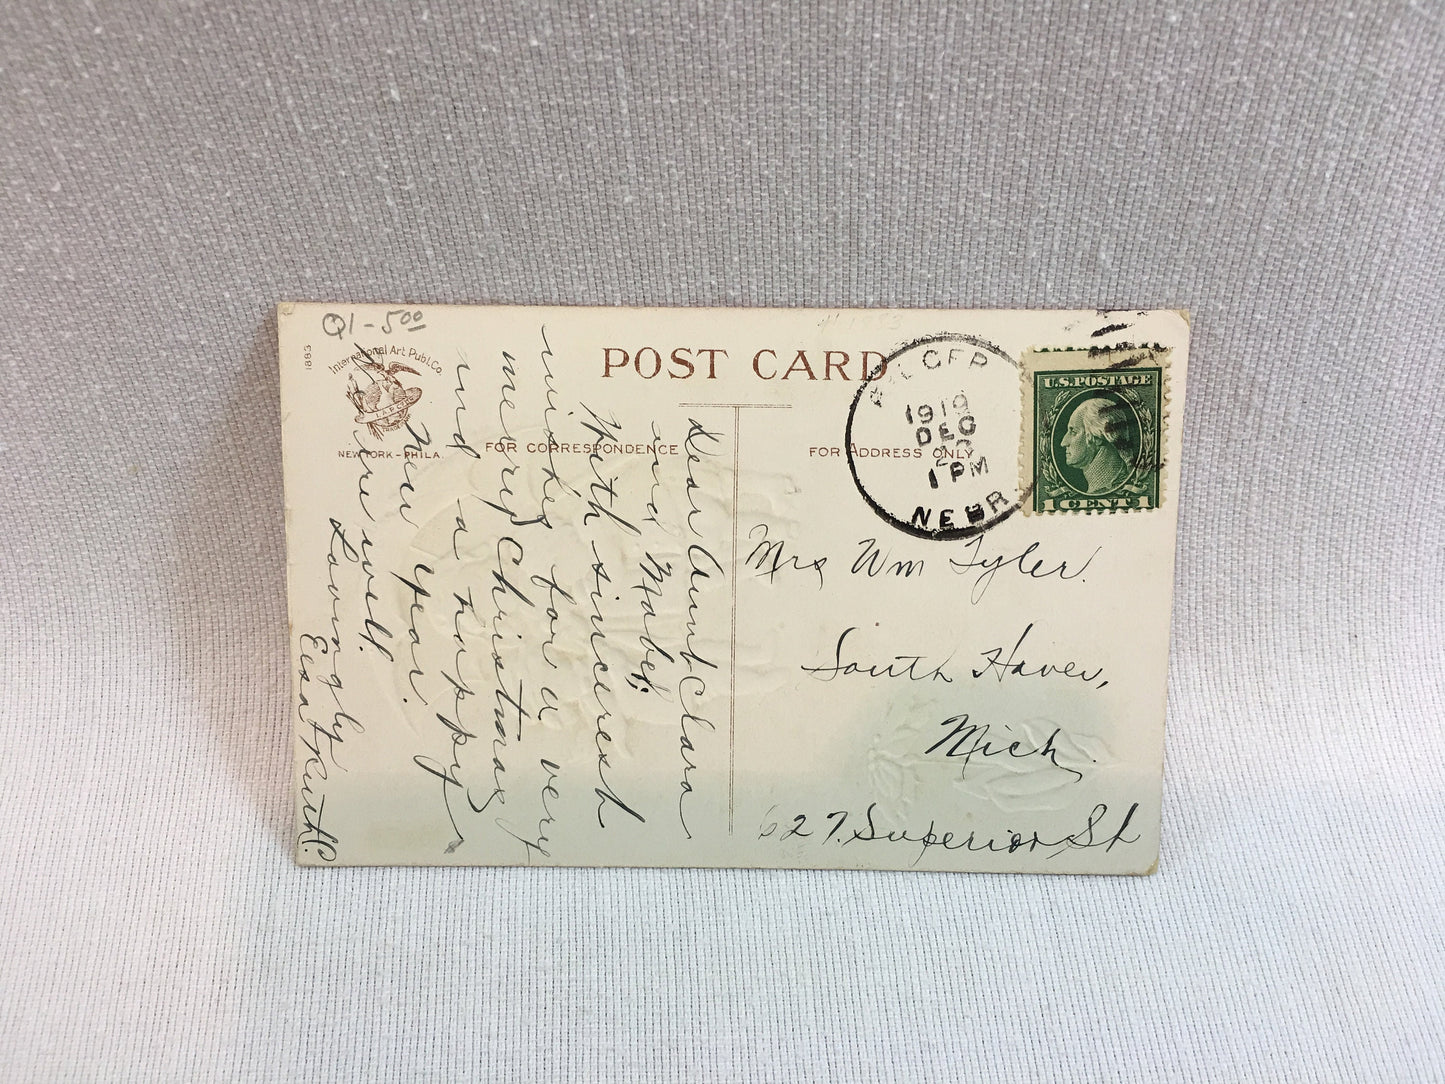 Q1-5.00
1883
International Art Publ. Co
I.A.P.Co.
NEW YORK - PHILA.
POST CARD
FOR CORRESPONDENCE
FOR ADDRESS ONLY
1919
DEC
1 PM
NEBR
U.S. POSTAGE
1 CENT 1
Dear Aunt Clara
and Mabel:
With sincerest
wishes for a very
merry Christmas
and a happy
New Year.
We're well.
Lovingly
Ruth
Mrs Wm Tyler.
South Haven,
Mich.
627. Superior St